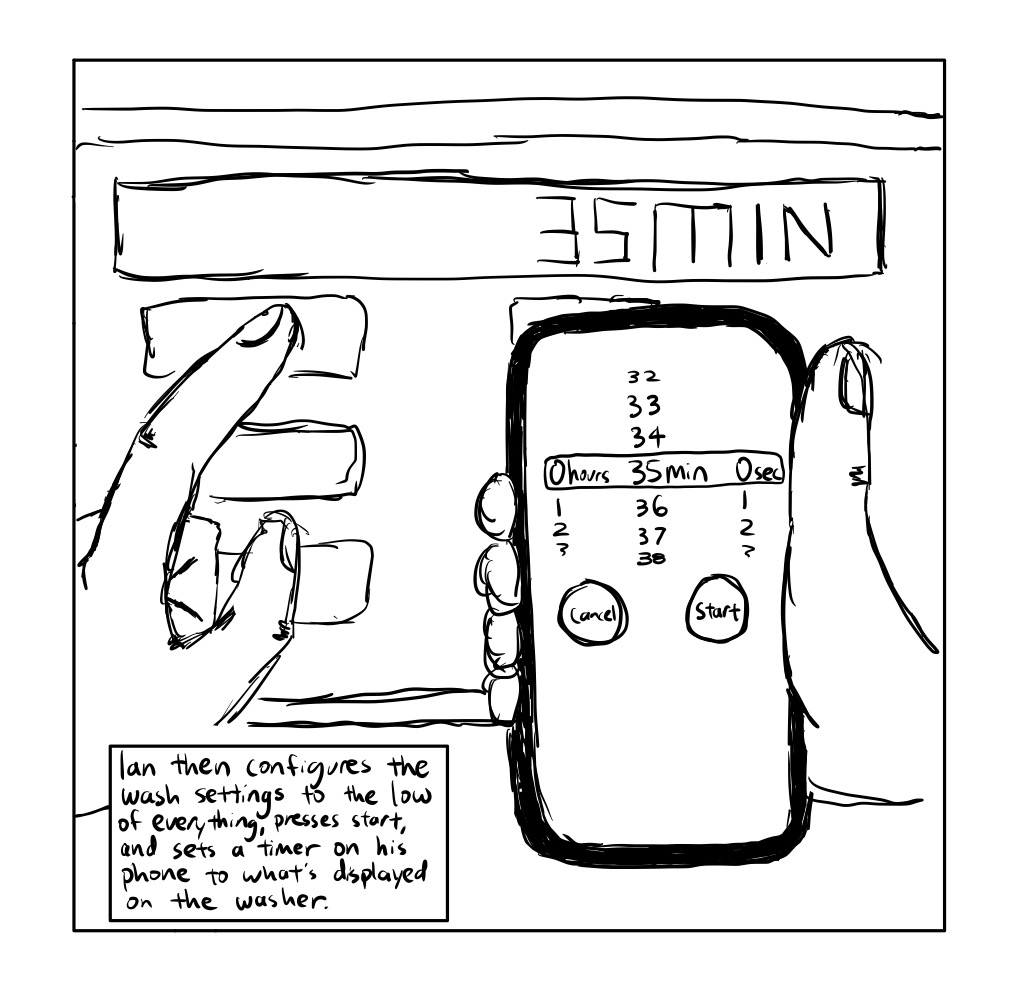 35 MIN
32
33
34
0 hours 35 min 0 sec
1 36 1
2 37 2
3 38 3
Cancel Start
Ian then configures the
wash settings to the low
of everything, presses start,
and sets a timer on his
phone to what's displayed
on the washer.